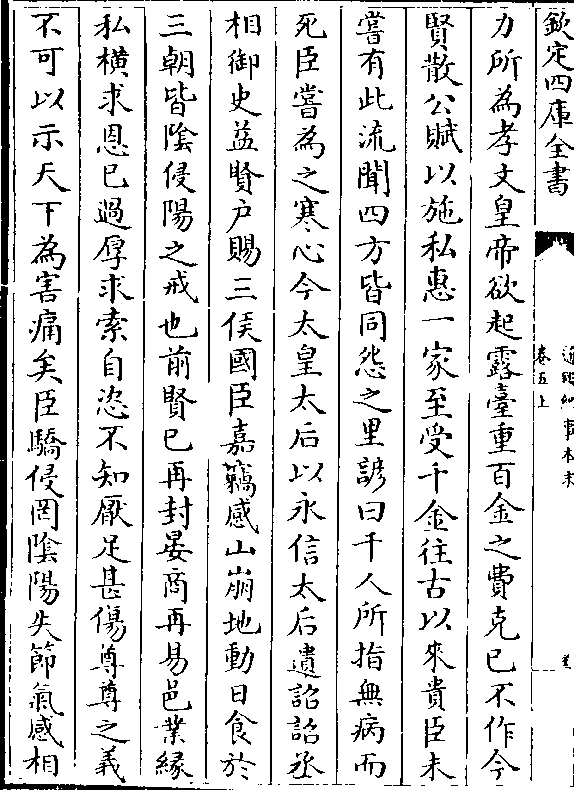 欽定四庫全書
通鑑紀事本末
卷五上
力所為孝文皇帝欲起露臺重百金之費克已不作今
賢散公賦以施私惠一家至受千金往古以來貴臣未
嘗有此流聞四方皆同怨之里諺曰千人所指無病而
死臣嘗為之寒心今太皇太后以永信太后遺詔詔丞
相御史益賢户賜三侯國臣嘉竊感山崩地動日食於
三朝皆隂侵陽之戒也前賢已再封晏商再易邑業緣
私横求恩已過厚求索自恣不知厭足甚傷尊尊之義
不可以示天下為害痛矣臣驕侵罔隂陽失節氣感相